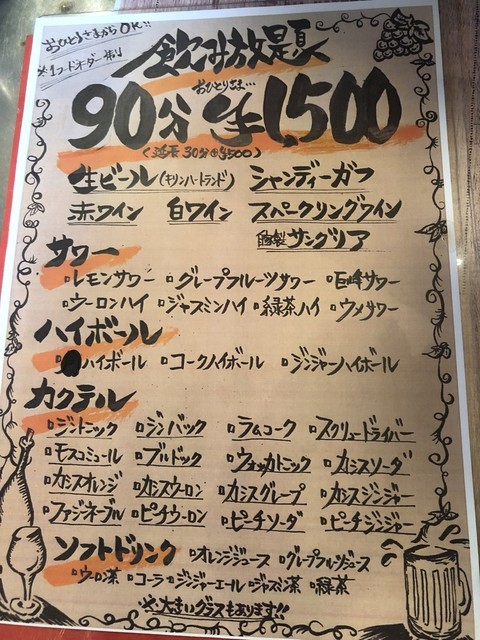 おひとりさまからOK!!
※1フードオーダー制
飲み放題
おひとりさま…
90分 ¥1,500
(延長 30分@¥500)
生ビール(キリンハートランド) シャンディーガフ
赤ワイン 白ワイン スパークリングワイン
自家製サングリア
サワー
レモンサワー グレープフルーツサワー 巨峰サワー
ウーロンハイ ジャスミンハイ 緑茶ハイ ウメサワー
ハイボール
ハイボール コークハイボール ジンジャーハイボール
カクテル
ジントニック ジンバック ラムコーク スクリュードライバー
モスコミュール ブルドック ウォッカトニック カシスソーダ
カシスオレンジ カシスウーロン カシスグレープ カシスジンジャー
ファジーネーブル ピーチウーロン ピーチソーダ ピーチジンジャー
ソフトドリンク オレンジジュース グレープフルーツジュース
ウーロン茶 コーラ ジンジャーエール ジャスミン茶 緑茶
※大きいグラスもあります!!